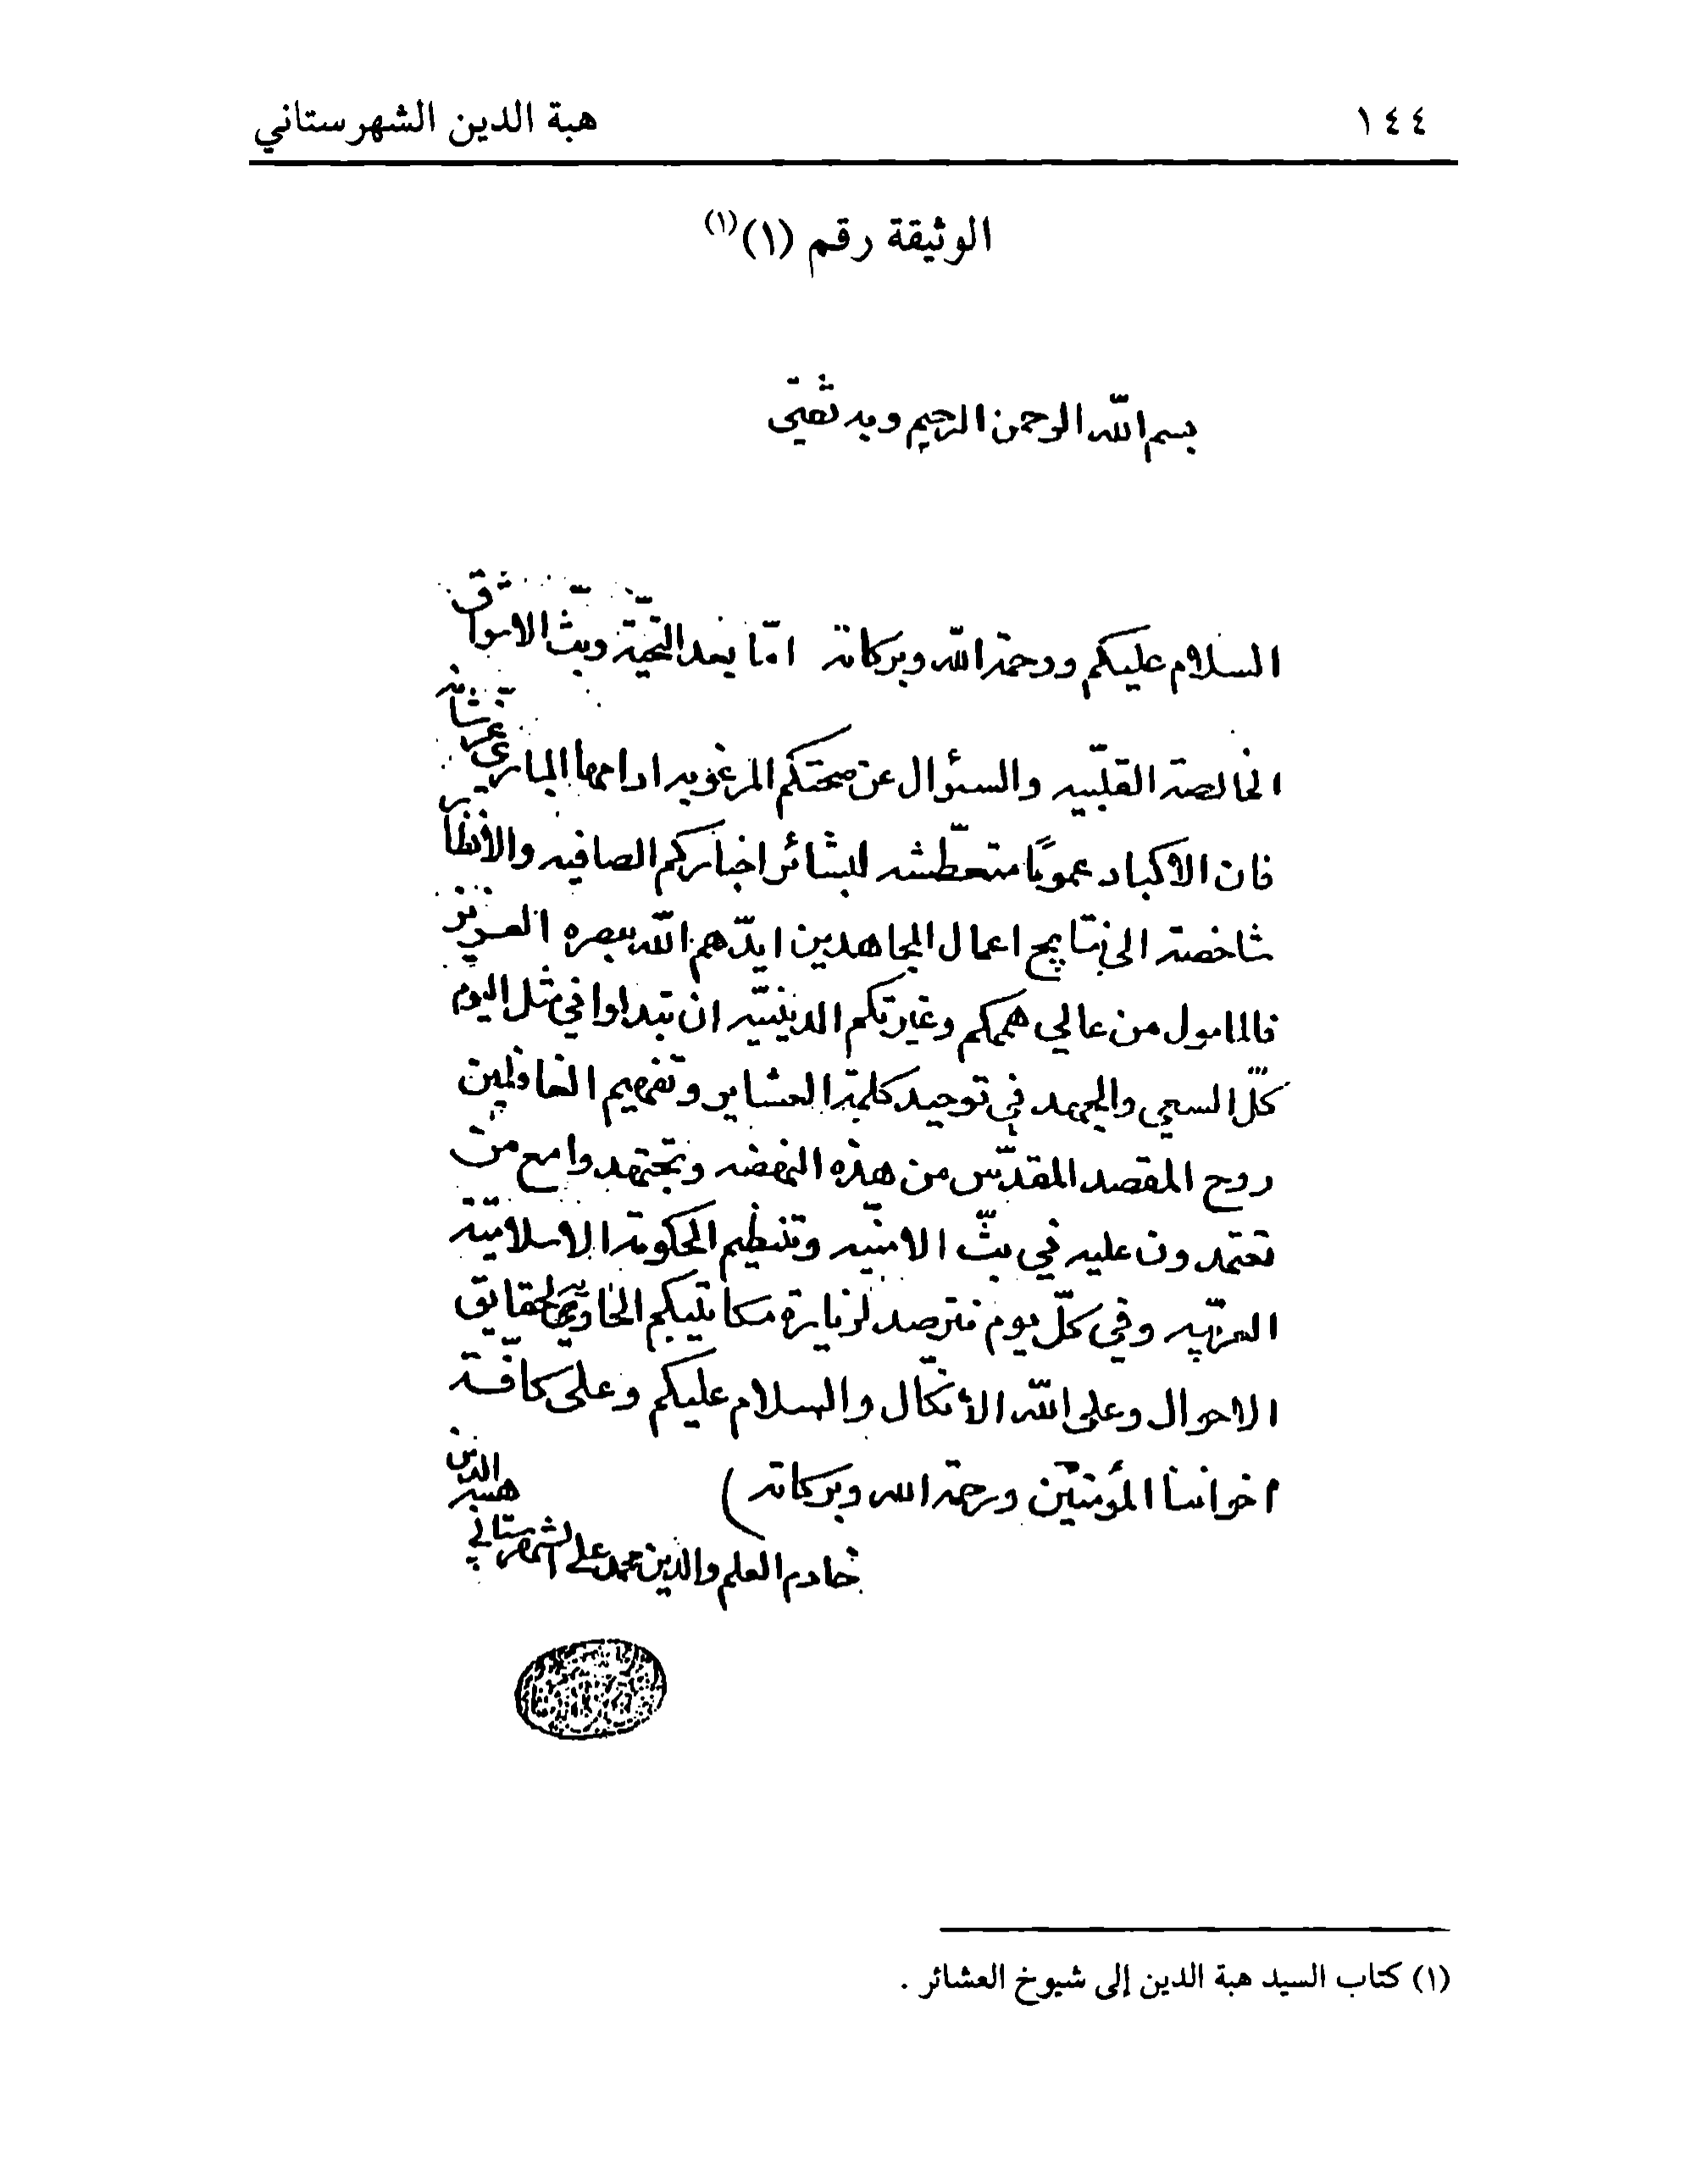 ١٤٤ هبة الدين الشهرستاني
الوثيقة رقم (١)(١)
بسم الله الرحمن الرحيم وبه ثقتي
السلام عليكم ورحمة الله وبركاته امّا بعد التحيّة وبثّ الاشواق
الخالصة القلبّيه والسئوال عن صحتكم المرغوبه ادامها الباري عزّ شانه
فان الاكباد عمومًا متعطّشه لبشائر اخباركم الصافيه والأنظار
شاخصة الى نتايج اعمال المجاهدين ايدّهم الله بنصره العزيز
فالمامول من عالي هممكم وغيرتكم الدينيّه ان تبدلوا في مثل اليوم
كلّ السعي والجهد في توحيد كلمة العشاير وتفهيم الغافلين
روح المقصد المقدّس من هذه النهضه وتجتهدوا مع من
تعتمدون عليه في بثّ الامنيّه وتنظيم الحكومة الاسلاميّة
العربّيه وفي كلّ يوم نترصد لزيارة مكاتيبكم الحاويه لحقايق
الاحوال وعلى الله الأتكّال والسلام عليكم وعلى كافّة
اخواننا المؤمنين ورحمة الله وبركاته)
خادم العلم والدين محمد علي هبة الدين الشهرستاني
(١) كتاب السيد هبة الدين إلى شيوخ العشائر .